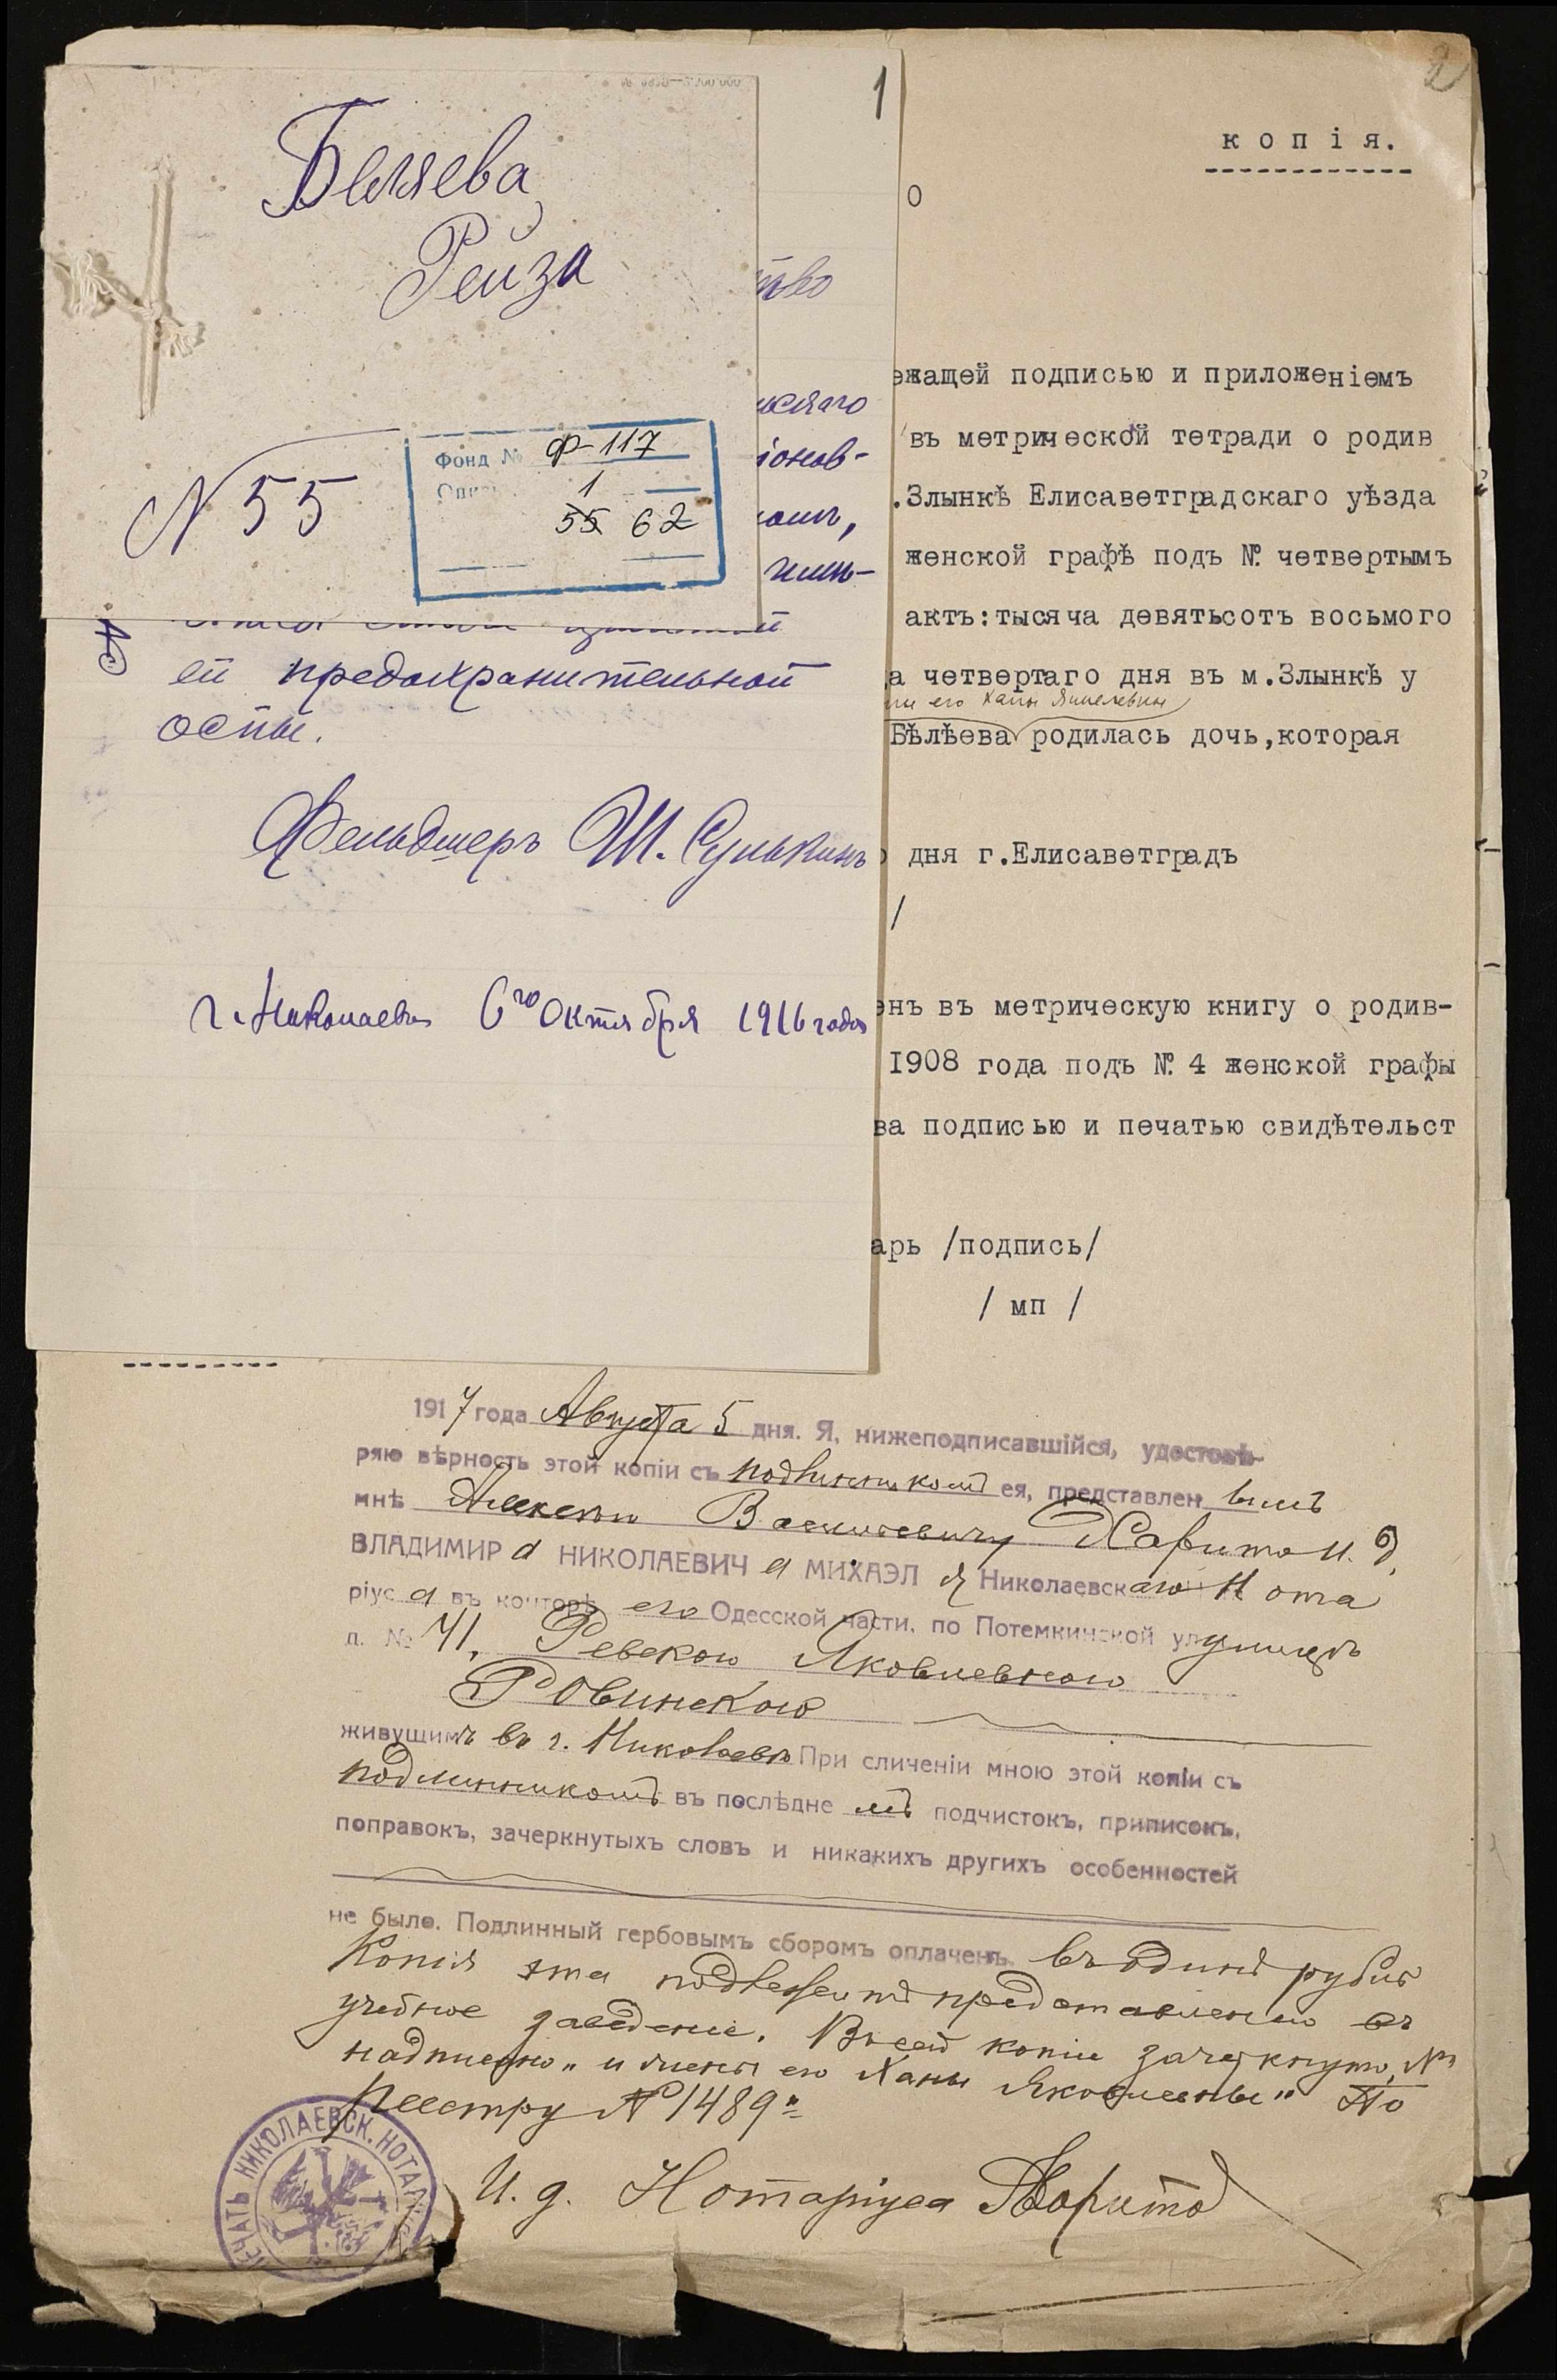 Беляева
Рейза
N 55
Фонд № Ф-117
1
55 62
1
тво
скаго
іонов-
ей предохранительной
оспы.
Фельдшеръ Ш. Сулькинъ
г. Николаевъ 6го Октября 1916 года
2
копія.
о
ежащей подписью и приложеніемъ
въ метрической тетради о родив
.Злынкѣ Елисаветградскаго уѣзда
женской графѣ подъ №. четвертымъ
актъ:тысяча девятьсотъ восьмого
а четвертаго дня въ м.Злынкѣ у
его Ханы
Бѣлѣева родилась дочь,которая
дня г.Елисаветградъ
/
енъ въ метрическую книгу о родив-
1908 года подъ №. 4 женской графы
ва подписью и печатью свидѣтельст
арь /подпись/
/ мп /
1917 года Августа 5 дня. Я, нижеподписавшійся, удостовѣ-
ряю вѣрность этой копіи съ подлинникомъ ея, представленнымъ
мнѣ Алексѣю Васильевичу Харито И. д.
ВЛАДИМИРа НИКОЛАЕВИЧа МИХАЭЛЯ Николаевскаго Нота
ріуса въ конторѣ его Одесской части, по Потемкинской улицѣ
д. № 41, Ревекою Яковлевною
Ровинскою
живущимъ въ г. Николаевѣ При сличеніи мною этой копіи съ
подлинникомъ въ послѣднемъ подчистокъ, приписокъ,
поправокъ, зачеркнутыхъ словъ и никакихъ другихъ особенностей
не было. Подлинный гербовымъ сборомъ оплаченъ въ одинъ рубль
Копія эта подлежитъ представленію въ
учебное заведеніе. Въ сей копіи зачеркнуто
надписано „и жены его Ханы Яковлевны" По
Реестру № 1489.
И. д. Нотаріуса Харито
ПЕЧАТЬ НИКОЛАЕВСК. НОТАР